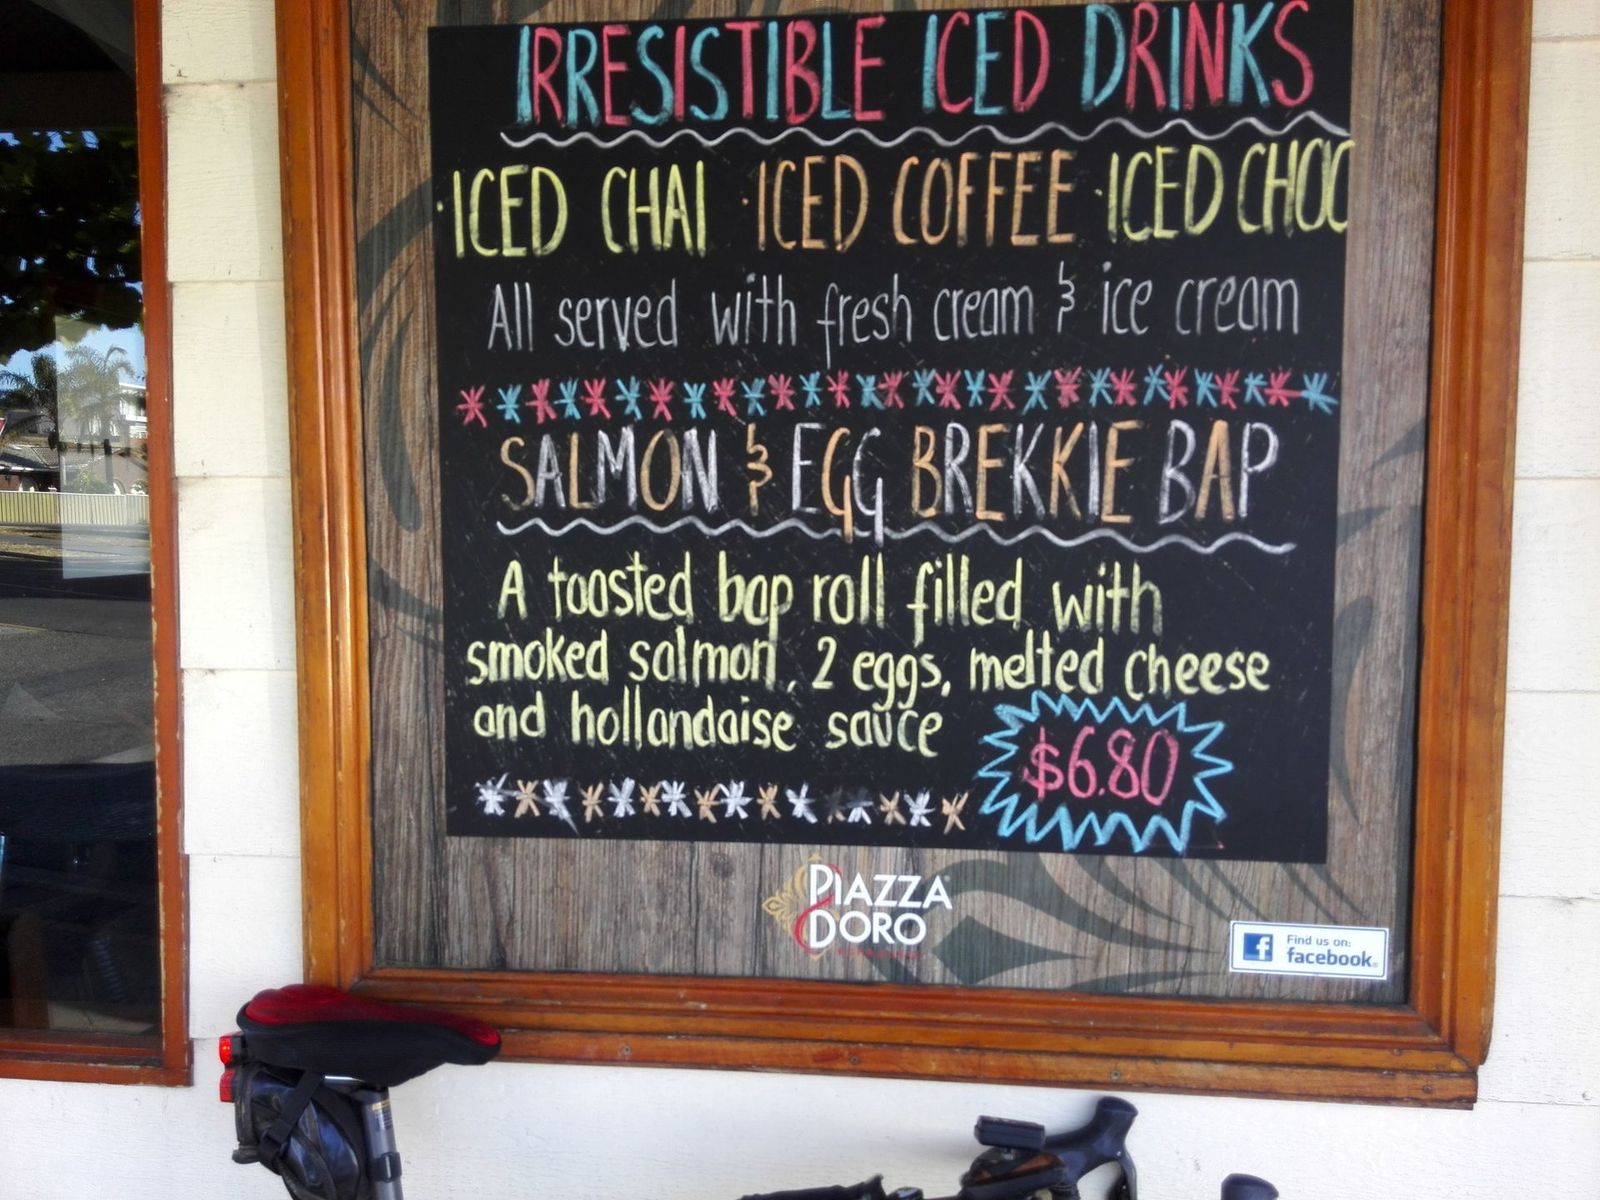 IRRESISTIBLE ICED DRINKS
·ICED CHAI ·ICED COFFEE ·ICED CHOC
All served with fresh cream & ice cream
SALMON & EGG BREKKIE BAP
A toasted bap roll filled with
smoked salmon, 2 eggs, melted cheese
and hollandaise sauce
$6.80
PIAZZA
DORO
Find us on:
facebook